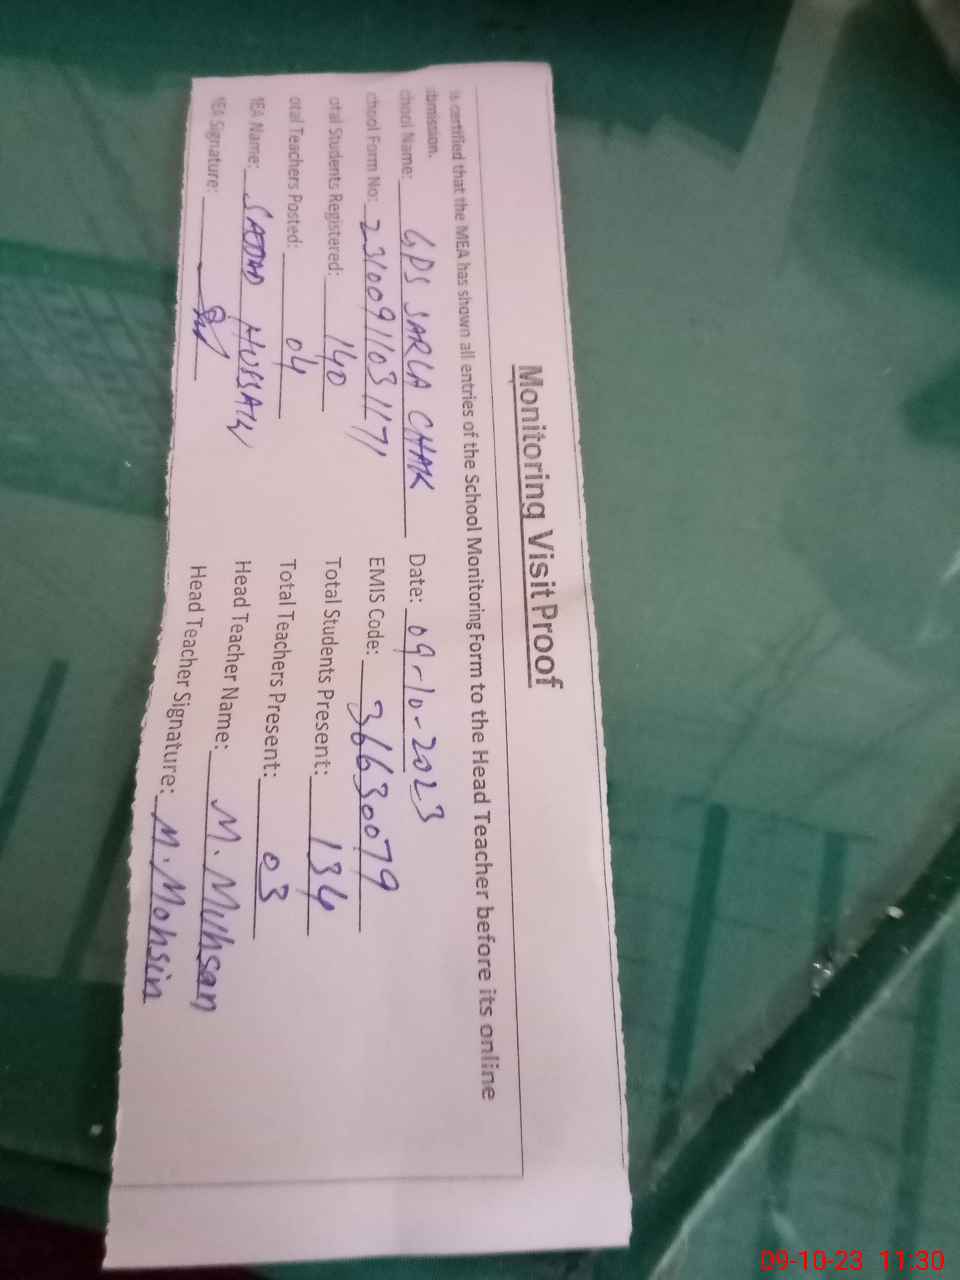 Monitoring Visit Proof
is certified that the MEA has shown all entries of the School Monitoring Form to the Head Teacher before its online
ubmission.
chool Name: GPS SARLA CHAK Date: 09-10-2023
chool Form No: 23100911031171 EMIS Code: 36630079
otal Students Registered: 140 Total Students Present: 134
otal Teachers Posted: 04 Total Teachers Present: 03
MEA Name: SAJJAD HUSSAIN Head Teacher Name: M. Muhsan
MEA Signature: Head Teacher Signature: M. Mohsin
09-10-23 11:30